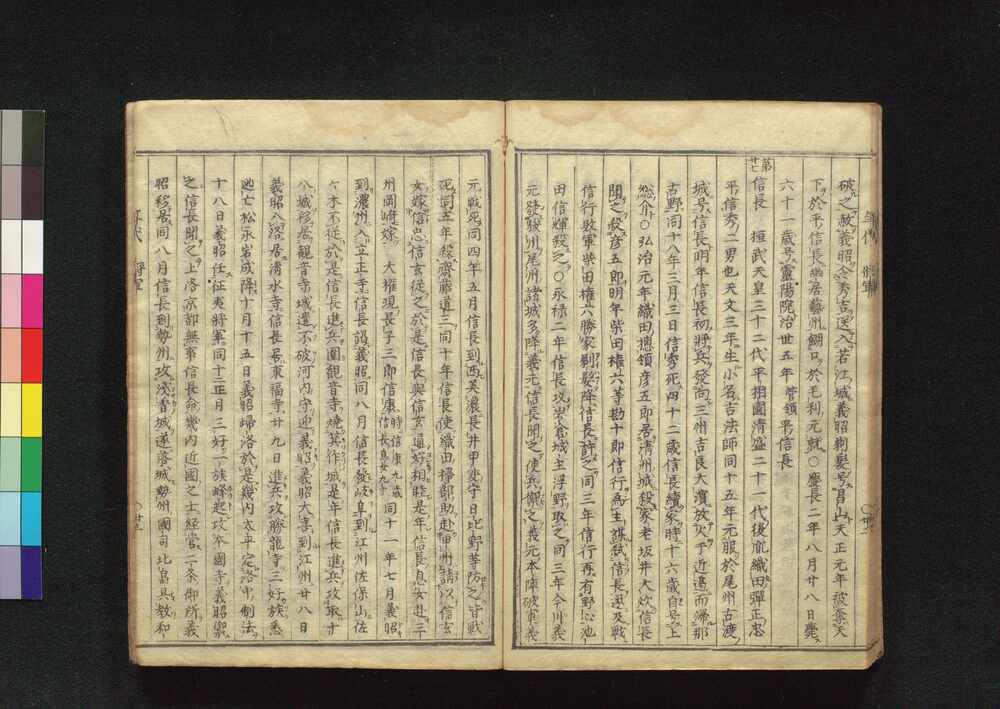 破之赦義昭令秀吉送入若江城義昭剃髪号昌山天正元年被奪天
下於平信長幽居藝州餬口於毛利元就〇慶長二年八月廿八日薨
六十一歳号靈陽院治世五年 管領平信長
第廿七 信長 桓武天皇三十二代平相國清盛二十一代後胤織田彈正忠
平信秀二男也天文三年生小名吉法師同十五年元服於尾州古渡
城号信長明年信長初將兵發向三州吉良大濱放火于近邊而歸那
古野同十八年三月三日信秀死四十二歳信長續家時十六歳自号上
総介〇弘治元年織田總領彦五郎居清州城殺家老坂井大炊信長
聞之殺彦五郎明年柴田権六等勸十郎信行為主謀弑信長迨及戦
信行敗軍柴田権六勝家剃髪降信長許之同三年信行再有野心池
田信輝殺之〇永禄二年信長攻岩倉城主浮野取之同三年今川義
元發駿州尾州諸城多降義元信長聞之使兵襲之義元本陣破軍義
元戦死同四年五月信長到西美濃長井甲斐守日比野等防之皆戦
死同五年殺齋藤道三同十年信長使織田掃部助赴甲州請以信玄
女嫁信忠信玄従之於是信長與信玄通好相睦是年信長息女赴三
州岡崎嫁 大権現長子三郎信康 時信康九歳信長息女九才 同十一年七月義昭
到濃州入立正寺信長謁義昭同八月信長發岐阜到江州佐保山佐
々木不従於是信長進兵圍觀音寺燒箕作城是年信長進兵攻取十
八城移居觀音寺城遣不破河内守迎義昭義昭大喜到江州廿八日
義昭入洛居清水寺信長居東福寺廿九日進兵攻勝龍寺三好族悉
迯亡松永岩成降十月十五日義昭歸洛於是畿内太平定洛中制法
十八日義昭任征夷將軍同十二正月三好一族蜂起攻本國寺義昭禦
之信長聞之上洛京都無事信長命畿内近國之士経営二条御所義
昭移居同八月信長到勢州攻浅香城遂落城勢州國司北畠具教和